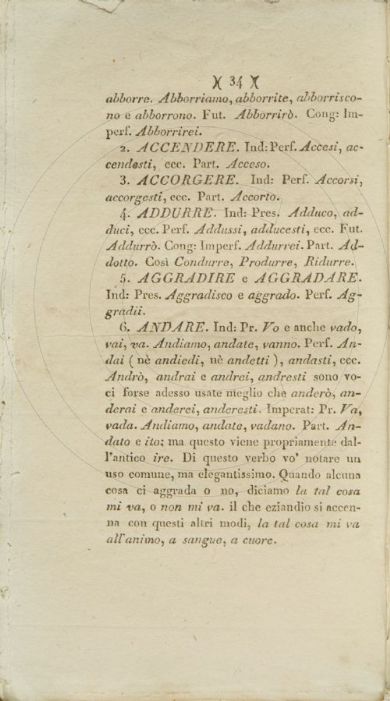 )( 34 )(
abborre. Abborriamo, abborrite, abborrisco-
no e abborrono. Fut. Abborrirò. Cong: Im-
perf. Abborrirei.
2. ACCENDERE. Ind: Perf. Accesi, ac-
cendesti, ecc. Part. Acceso.
3. ACCORGERE. Ind: Perf. Accorsi,
accorgesti, ecc. Part. Accorto.
4. ADDURRE. Ind: Pres. Adduco, ad-
duci, ecc. Perf. Addussi, adducesti, ecc. Fut.
Addurrò. Cong: Imperf. Addurrei. Part. Ad-
dotto. Così Condurre, Produrre, Ridurre.
5. AGGRADIRE e AGGRADARE.
Ind: Pres. Aggradisco e aggrado. Perf. Ag-
gradii.
6. ANDARE. Ind: Pr. Vo e anche vado,
vai, va. Andiamo, andate, vanno. Perf. An-
dai ( nè andiedi, nè andetti ), andasti, ecc.
Andrò, andrai e andrei, andresti sono vo-
ci forse adesso usate meglio che anderò, an-
derai e anderei, anderesti. Imperat: Pr. Va,
vada. Andiamo, andate, vadano. Part. An-
dato e ito: ma questo viene propriamente dal-
l'antico ire. Di questo verbo vo' notare un
uso comune, ma elegantissimo. Quando alcuna
cosa ci aggrada o no, diciamo la tal cosa
mi va, o non mi va. il che eziandio si accen-
na con questi altri modi, la tal cosa mi va
all'animo, a sangue, a cuore.